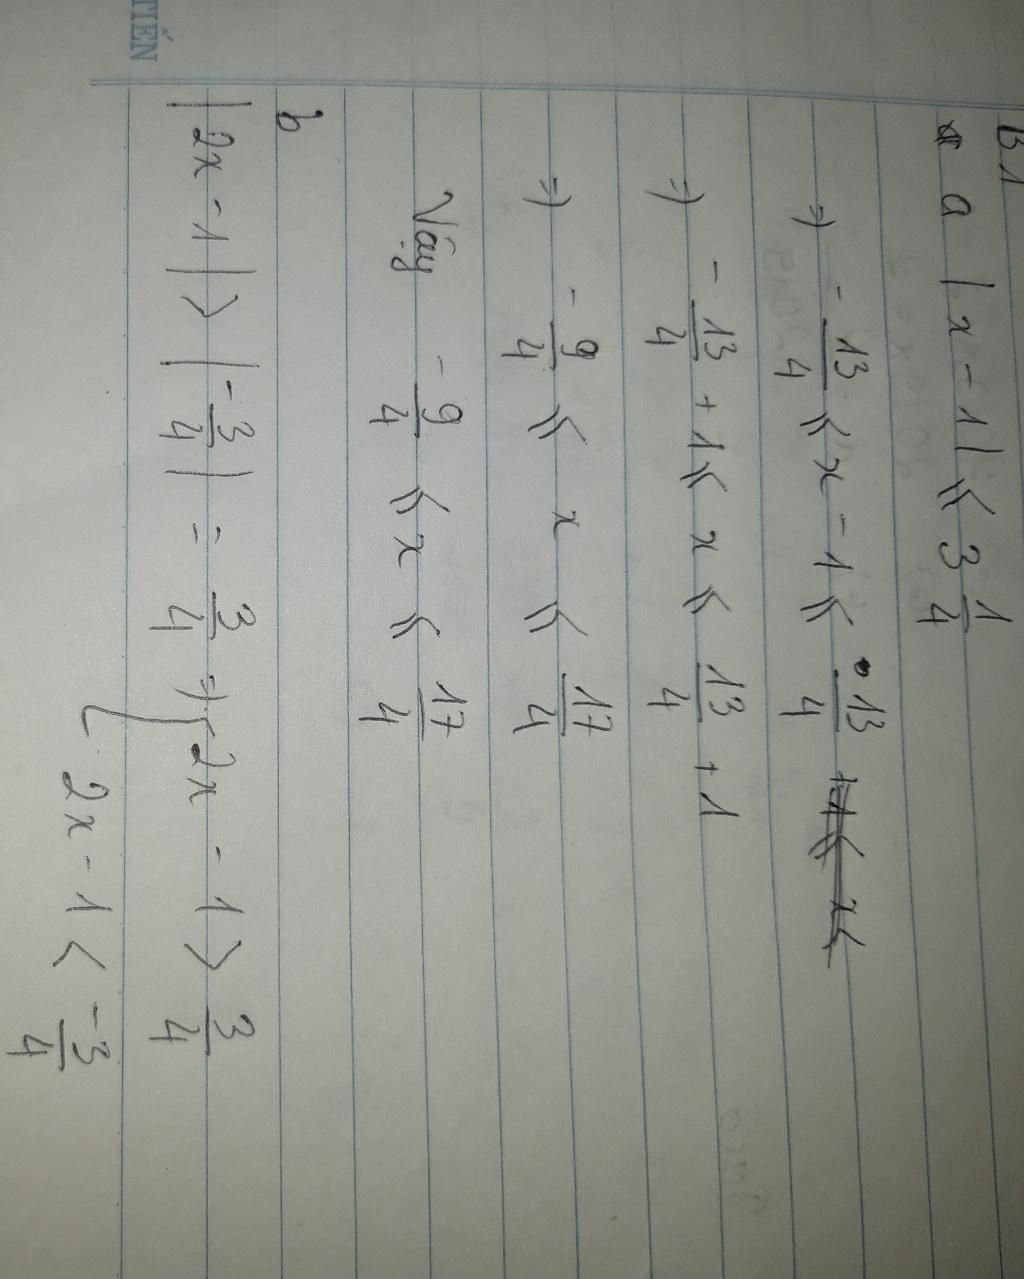 B1
a |x - 1| ≤ 3 1/4
=) - 13/4 ≤ x - 1 ≤ 13/4
=) - 13/4 + 1 ≤ x ≤ 13/4 + 1
=) - 9/4 ≤ x ≤ 17/4
Vậy - 9/4 ≤ x ≤ 17/4
b
|2x - 1| > |-3/4| = 3/4 =) { 2x - 1 > 3/4
2x - 1 < -3/4
TIẾN